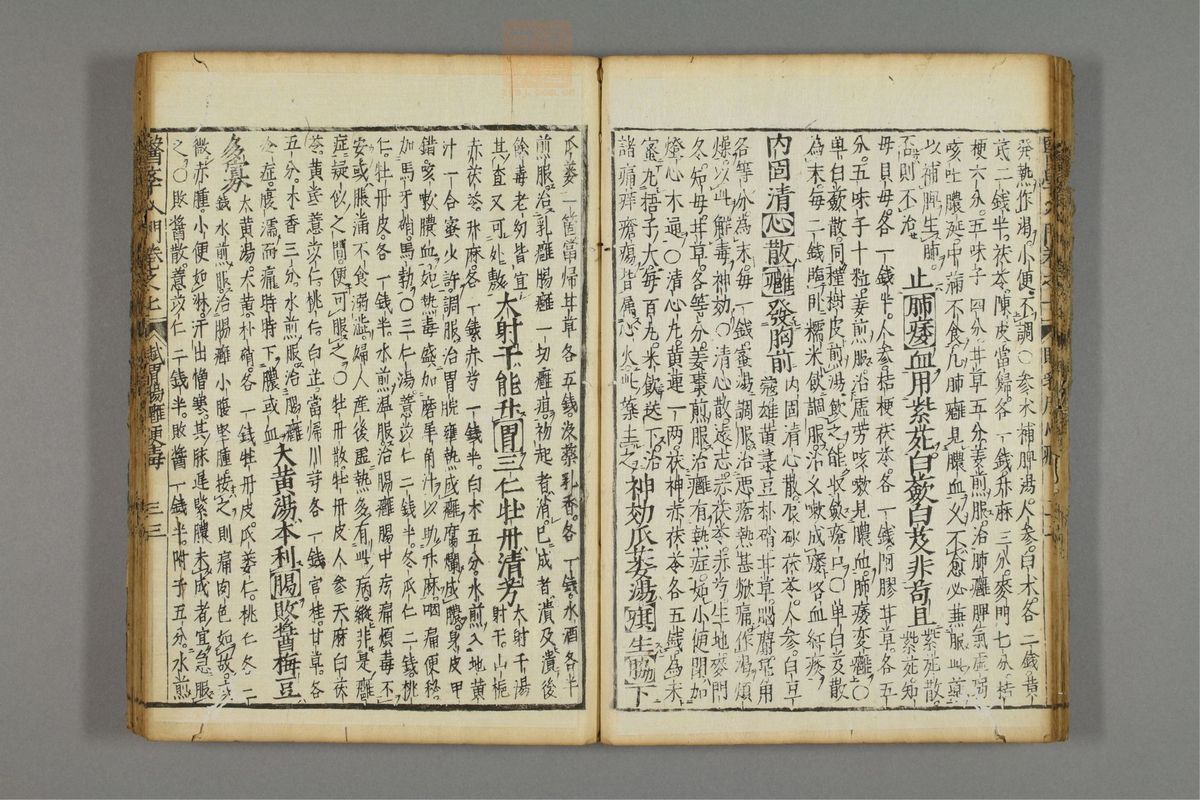 發熱作渴。小便不調。○參朮補脾湯。人參。白朮。各二錢。黃
芪二錢半。茯苓。陳皮。當歸。各一錢。升麻三分。麥門七分。桔
梗六分。五味子四分。甘草五分。姜煎服。治肺癰脾氣虛弱
咳吐膿涎。中滿不食。凡肺癰見膿血。久不愈。必兼服此藥
以補脾生肺。
否則不治
止肺痿血用紫菀白蘞白芨非苟且
紫菀散。
紫菀。知
母。貝母。各一錢半。人參。桔梗。茯苓。各一錢。阿膠。甘草。各五
分。五味子十粒。姜煎服。治虛勞咳嗽見膿血。肺痿変癰。○
單白蘞散。同槿樹皮煎湯飲之。能收歛瘡口。○單白芨散
為末。每二錢臨臥糯米飲調服。治久嗽成痿。咯血紅痰。
內固清心散癰發胸前
內固清心散。辰砂。茯苓。人參。白豆
蔻。雄黃。菉豆。朴硝。甘草。腦麝。皂角
各等分。為末。每一錢。蜜湯調服。治悪瘡熱甚焮痛。作渴煩
燥。以此解毒神効。○清心散。遠志。赤茯苓。赤芍。生地。麥門
冬。知母。甘草。各等分。姜棗煎服。治癰有熱症。如小便閉。加
燈心木通。○清心丸。黃連一兩。茯神。赤茯苓各五錢。為末
蜜丸梧子大。每百丸。米飲送下。治
諸痛痒瘡瘍。皆屬心火。此藥主之
神効瓜蔞湯癀生脇下
瓜蔞一箇。當歸甘草各五錢。沒藥乳香。各一錢。水酒各半
煎服。治乳癰腸癰一切癰疽。初起者消。已成者潰。及潰後
餘毒。老幼皆宜。
其查又可外敷
太射千能升胃三仁牡丹清芳
太射千湯
射干。山梔
赤茯苓。升麻。各一錢。赤芍一錢半。白朮五分。水煎。入地黃
汁一合。蜜少許。調服。治胃脘壅熱成癰。腐爛成膿。身皮甲
錯。咳嗽膿血。如熱毒盛。加磨羊角汁。以助升麻。咽痛便秘。
加馬牙硝。馬勃。○三仁湯。薏苡仁二錢半。冬瓜仁二錢。桃
仁。牡丹皮。各一錢半。水煎溫服。治腸癰腸中疼痛。煩毒不
安。或脹滿不食。溺澁。婦人產後虛熱。多有此病。縱非是癰
症。疑似之間。便可服之。○牡丹散。牡丹皮。人參。天麻。白茯
苓。黃芪。薏苡仁。桃仁。白芷。當歸。川芎。各一錢。官桂。甘草。各
五分。木香三分。水煎服。治腸癰
冷症。腹濡而痛。時時下膿或血
大黃湯本利腸敗醬梅豆
多寡
大黃湯。大黃。朴硝。各一錢。牡丹皮。瓜蔞仁。桃仁。各二
錢。水煎服。治腸癰小腹堅腫。按之則痛。肉色如故。或
微赤腫。小便如淋。汗出憎寒。其脉遲緊。膿未成者。宜急服
之。○敗醬散。薏苡仁二錢半。敗醬一錢半。附子五分。水煎
醫學入門卷之七
臟胃腸癰便毒
三三